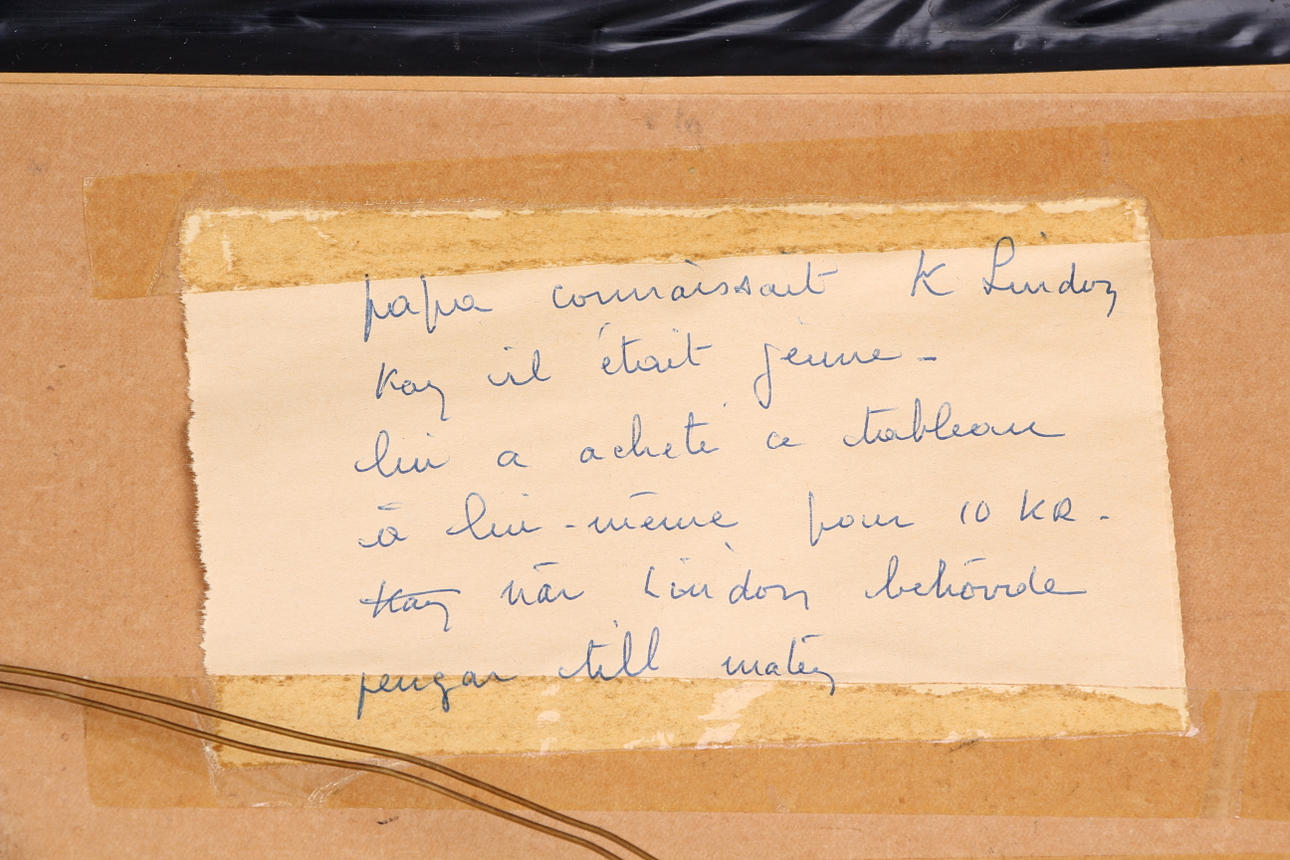 papa connaissait K Lindon
Kan il était jeune -
lui a acheté ce tableau
à lui-même pour 10 KR.
Kan när Lindon behövde
pengar till maten